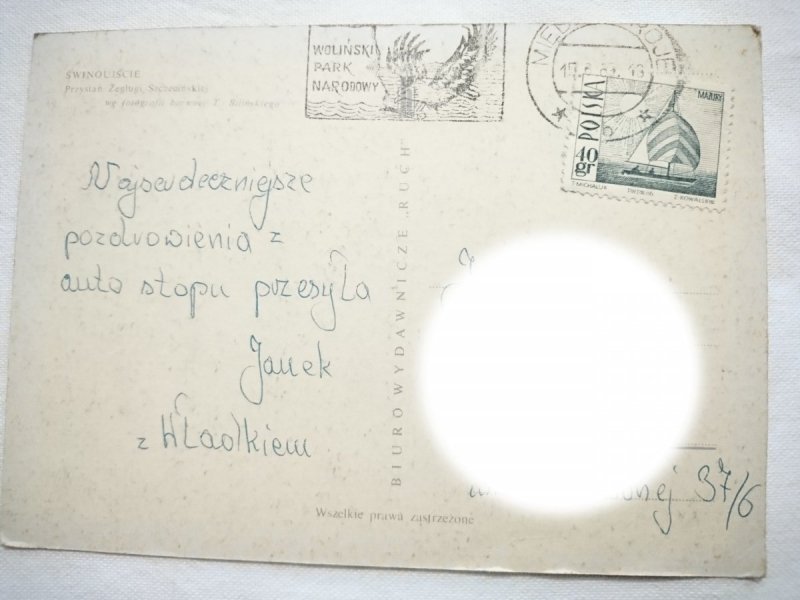 ŚWINOUJŚCIE
Przystań Żeglugi Szczecińskiej
wg fotografii barwnej T. Bilińskiego
WOLIŃSKI
PARK
NARODOWY
POLSKA
MAZURY
40
gr
T. MICHALUK
PWPW-66
Z. KOWALSKI
Najserdeczniejsze
pozdrowienia z
auto stopu przesyła
Janek
z Władkiem
BIURO WYDAWNICZE „RUCH”
37/6
Wszelkie prawa zastrzeżone